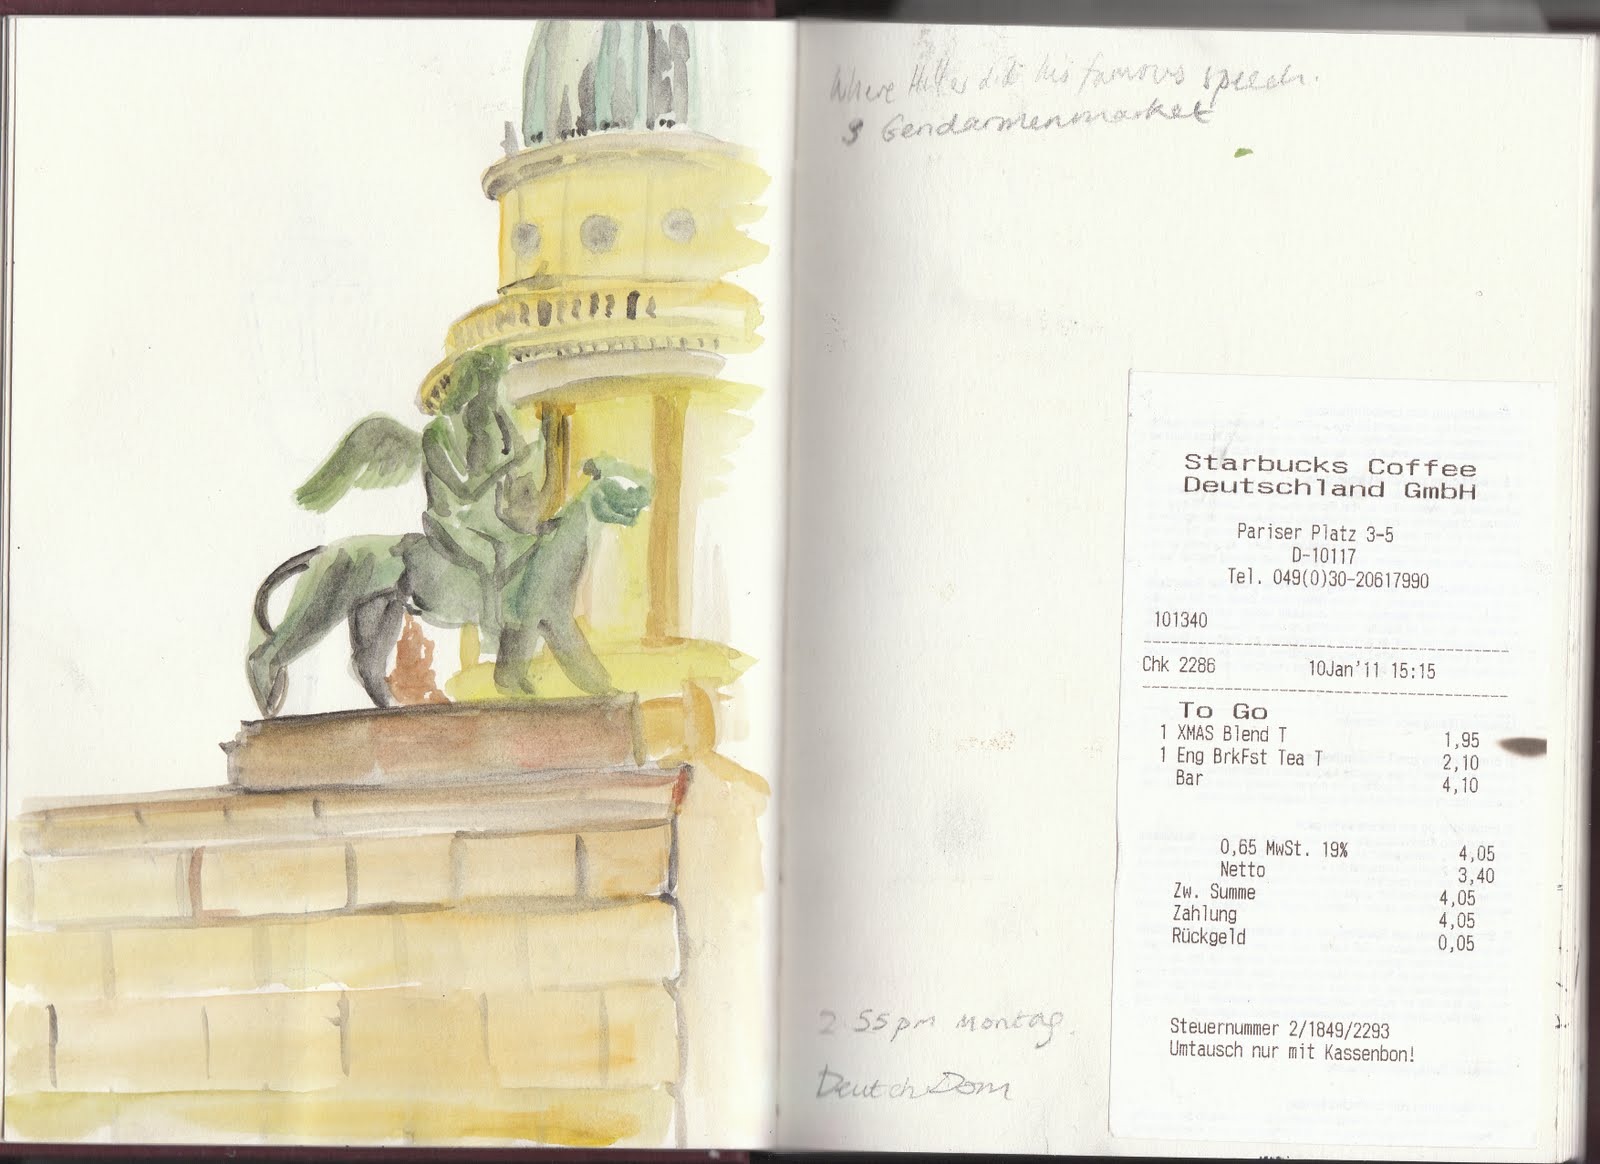 Where Hitler did his famous speech.
& Gendarmenmarket
Starbucks Coffee
Deutschland GmbH
Pariser Platz 3-5
D-10117
Tel. 049(0)30-20617990
101340
Chk 2286 10Jan'11 15:15
To Go
1 XMAS Blend T 1,95
1 Eng BrkFst Tea T 2,10
Bar 4,10
0,65 MwSt. 19% 4,05
Netto 3,40
Zw. Summe 4,05
Zahlung 4,05
Rückgeld 0,05
Steuernummer 2/1849/2293
Umtausch nur mit Kassenbon!
2 55pm Montag.
Deutch Dom